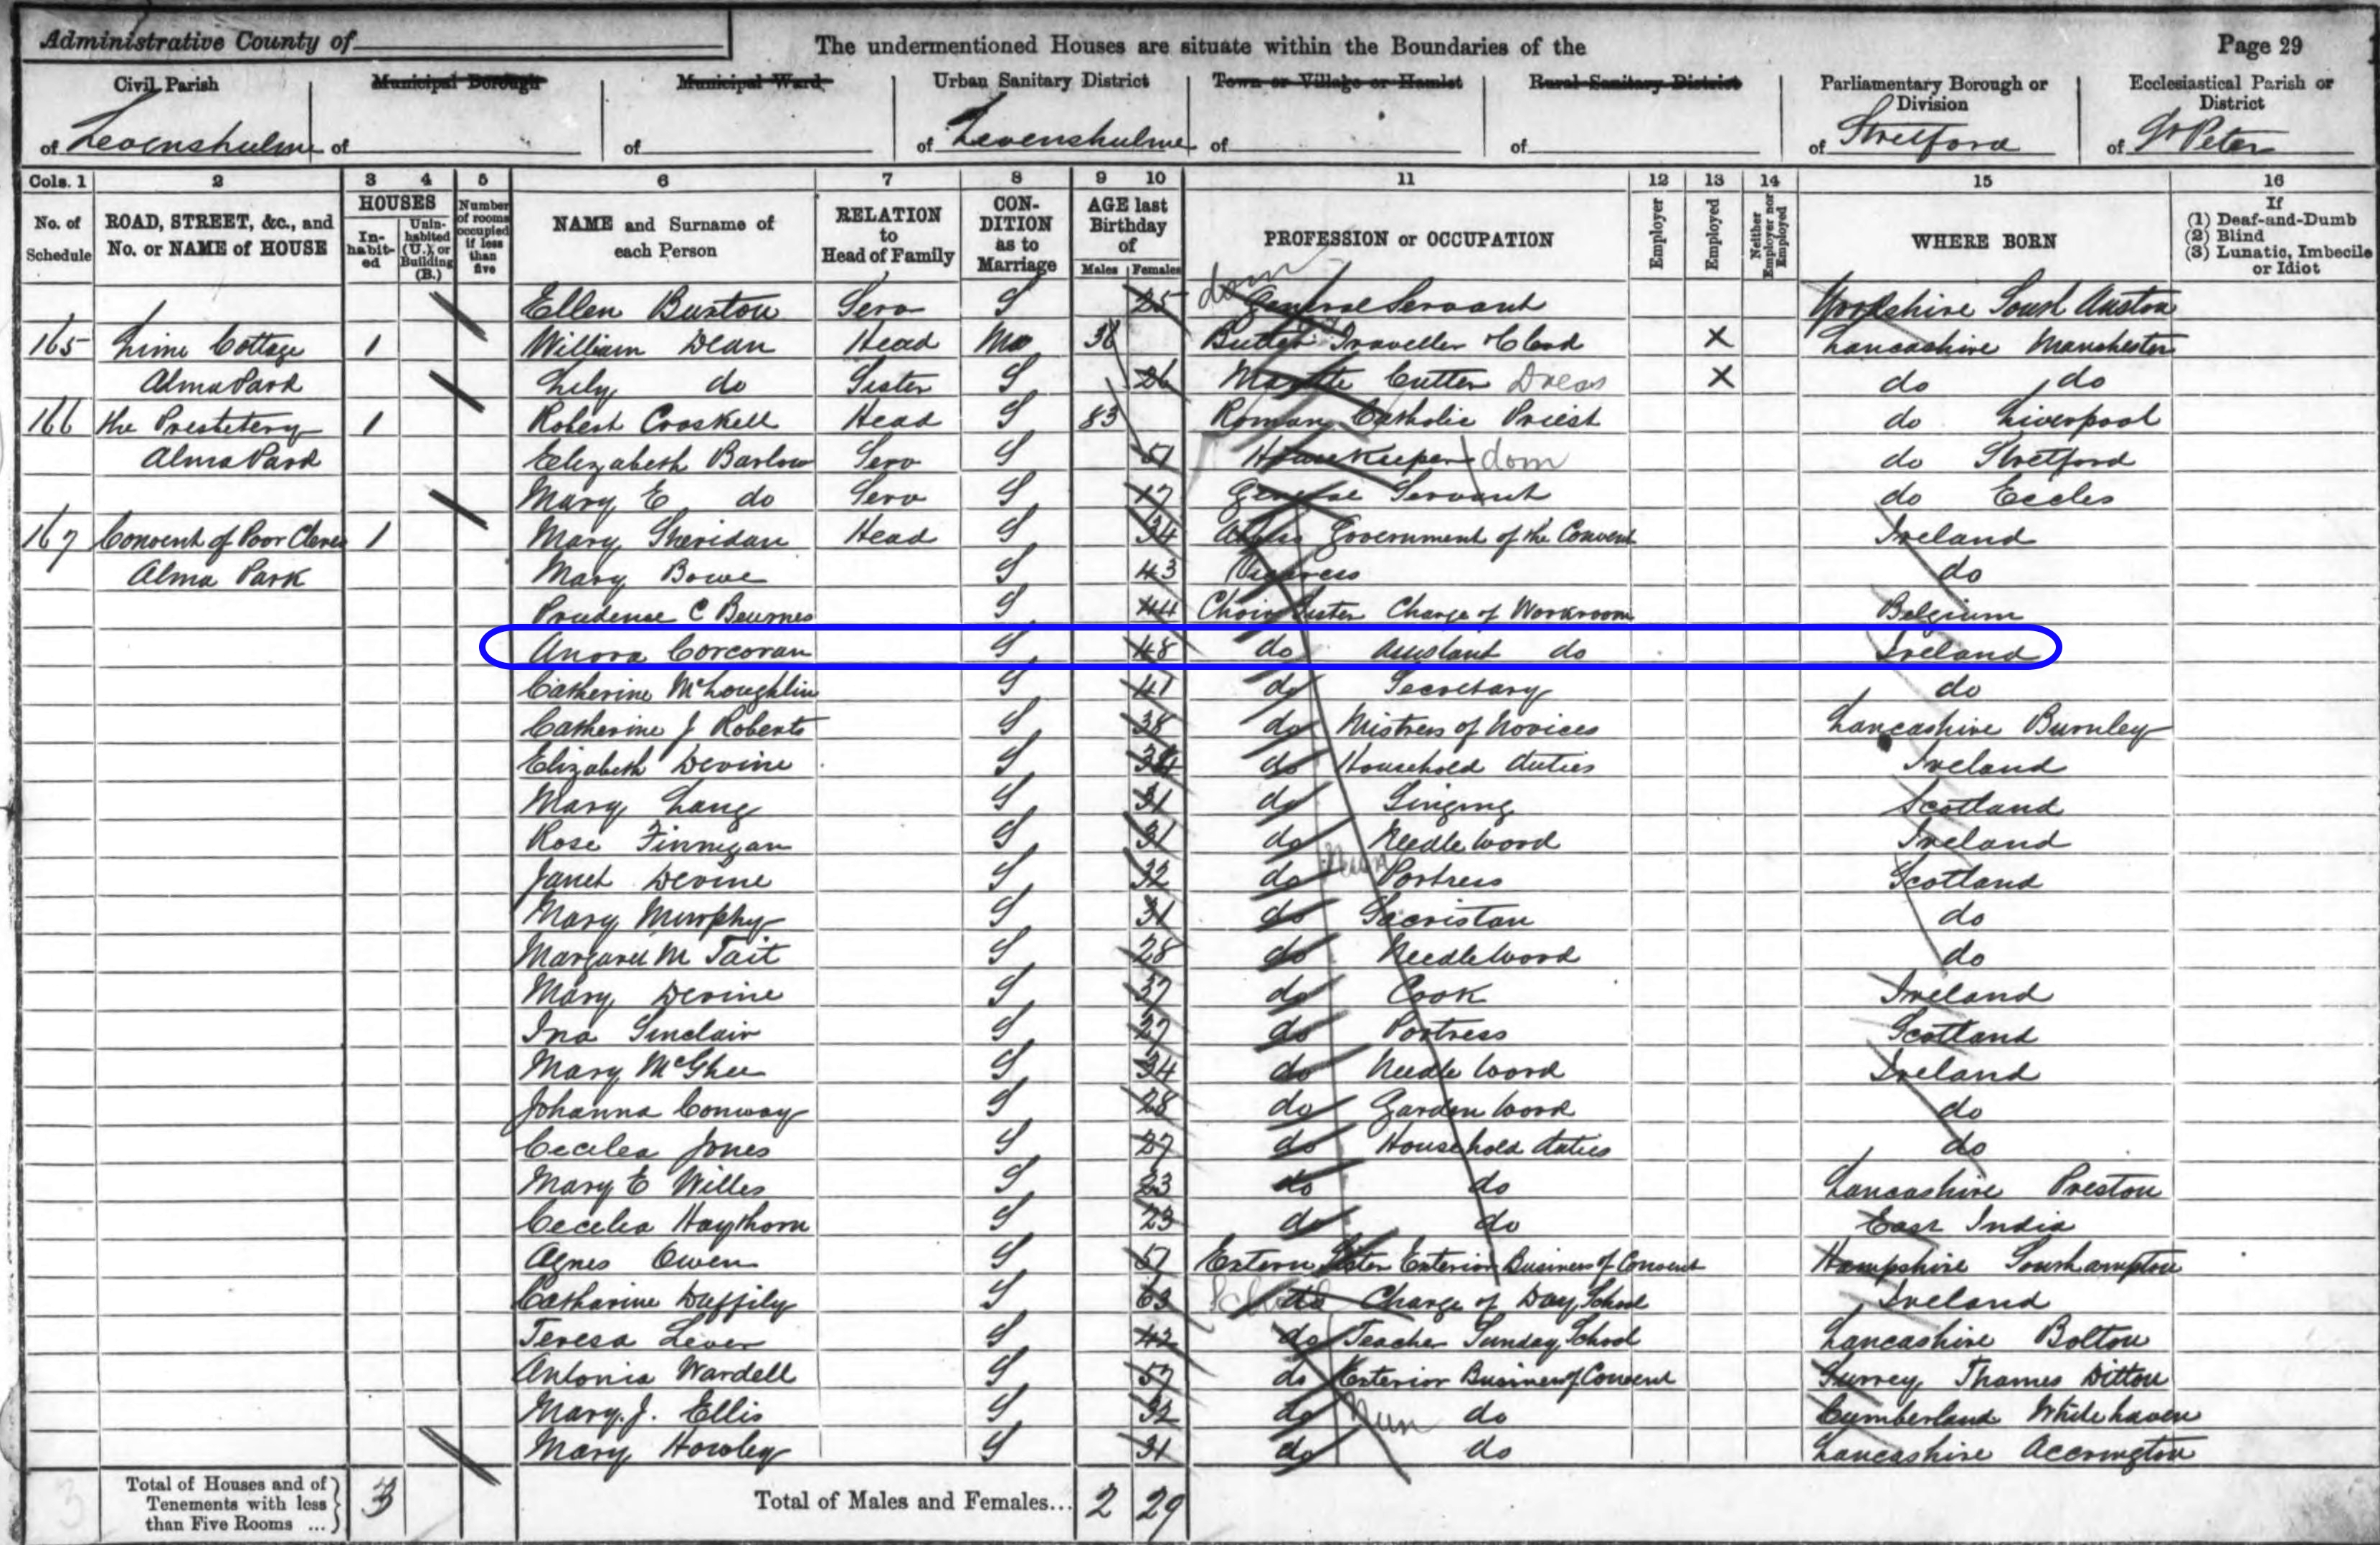 Administrative County of
The undermentioned Houses are situate within the Boundaries of the
Page 29
Civil Parish Municipal Borough Municipal Ward Urban Sanitary District Town or Village or Hamlet Rural Sanitary District Parliamentary Borough or Division Ecclesiastical Parish or District
of Levenshulme of of of Levenshulme of of of Stretford of St Peter
Cols. 1 2 3 4 5 6 7 8 9 10 11 12 13 14 15 16
No. of Schedule ROAD, STREET, &c., and No. or NAME of HOUSE HOUSES In-habit-ed Unin-habited (U.), or Building (B.) Number of rooms occupied if less than five NAME and Surname of each Person RELATION to Head of Family CON-DITION as to Marriage AGE last Birthday of Males Females PROFESSION or OCCUPATION Employer Employed Neither Employer nor Employed WHERE BORN If (1) Deaf-and-Dumb (2) Blind (3) Lunatic, Imbecile or Idiot
Ellen Buxton Serv S 25 General Servant dom Yorkshire South Anston
165 Lime Cottage 1 William Dean Head 38 Traveller X Lancashire Manchester
Alma Park Lily do Sister S 26 Mantle Cutter X do do
166 the 1 Robert Croskell Head S 83 Roman Catholic Priest do Liverpool
Alma Park Elizabeth Barlow Serv S 51 Housekeeper dom do Stretford
Mary E do Serv S 17 General Servant do Eccles
167 Convent of Poor Clares 1 Mary Sheridan Head S 34 Abbess Government of the Convent Ireland
Alma Park Mary Bowe S 43 Vicaress do
Prudence C S 44 Choir Sister Charge of Workroom Belgium
Anora Corcoran S 48 do Assistant do Ireland
Catherine McLoughlin S 41 do Secretary do
Catherine J Roberts S 38 do Mistress of Novices Lancashire Burnley
Elizabeth Devine S do Household duties Ireland
Mary Lang S 31 do Singing Scotland
Rose Finnigan S 31 do Needle work Ireland
Janet Devine S 32 do Portress Nun Scotland
Mary Murphy S 31 do Sacristan do
Margaret M Tait S 28 do Needlework do
Mary Devine S 37 do Cook Ireland
Ina Sinclair S 27 do Portress Scotland
Mary McGhee S 34 do Needle work Ireland
Johanna Conway S 28 do Garden work do
Cecilea Jones S 27 do Household duties do
Mary E Willes S 23 do do Lancashire Preston
Cecelia Haythorn S 23 do do East India
Agnes Owen S 57 Extern Sister Exterior Business of Convent Hampshire Southampton
Catharine Duffily S 63 School do Charge of Day School Ireland
Teresa Lever S 42 do Teacher Sunday School Lancashire Bolton
Antonia Wardell S 57 do Exterior Business of Convent Surrey Thames Ditton
Mary. J. Ellis S 32 do Nun do Cumberland Whitehaven
Mary Howley S 31 do do Lancashire Accrington
Total of Houses and of Tenements with less than Five Rooms ... 3 Total of Males and Females... 2 29